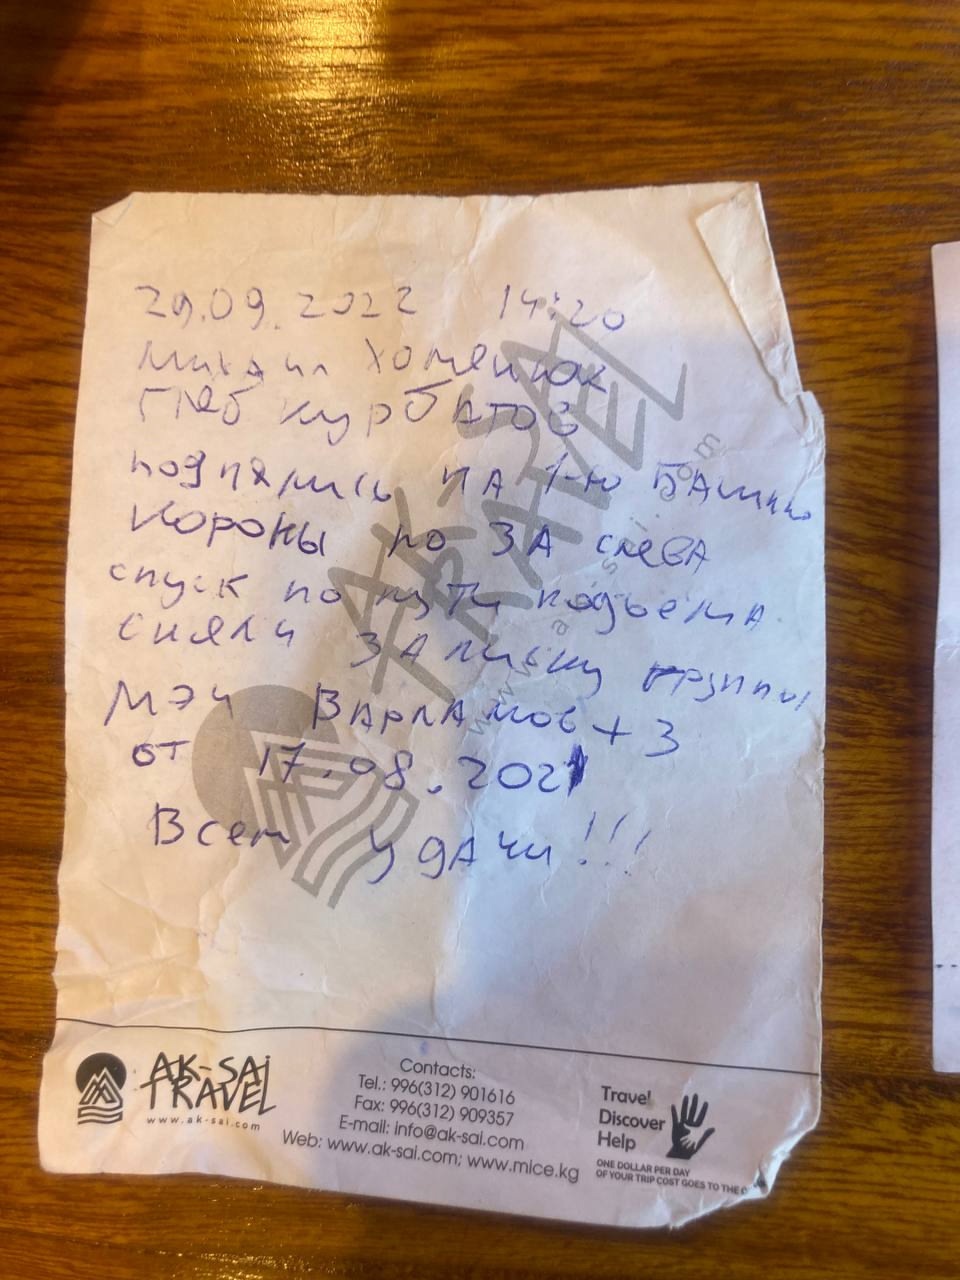 29.09.2022 14:20
Михаил Хоменюк
Глеб Курбатов
поднялись на 1-ю Башню
Короны по 3А слева
спуск по пути подъема
сняли записку группы
МЭИ Варламов + 3
от 17.08.2021
Всем удачи!!!
AK-SAI
TRAVEL
www.ak-sai.com
AK-SAI
TRAVEL
www.ak-sai.com
Contacts:
Tel.: 996(312) 901616
Fax: 996(312) 909357
E-mail: info@ak-sai.com
Web: www.ak-sai.com; www.mice.kg
Travel
Discover
Help
ONE DOLLAR PER DAY
OF YOUR TRIP COST GOES TO THE